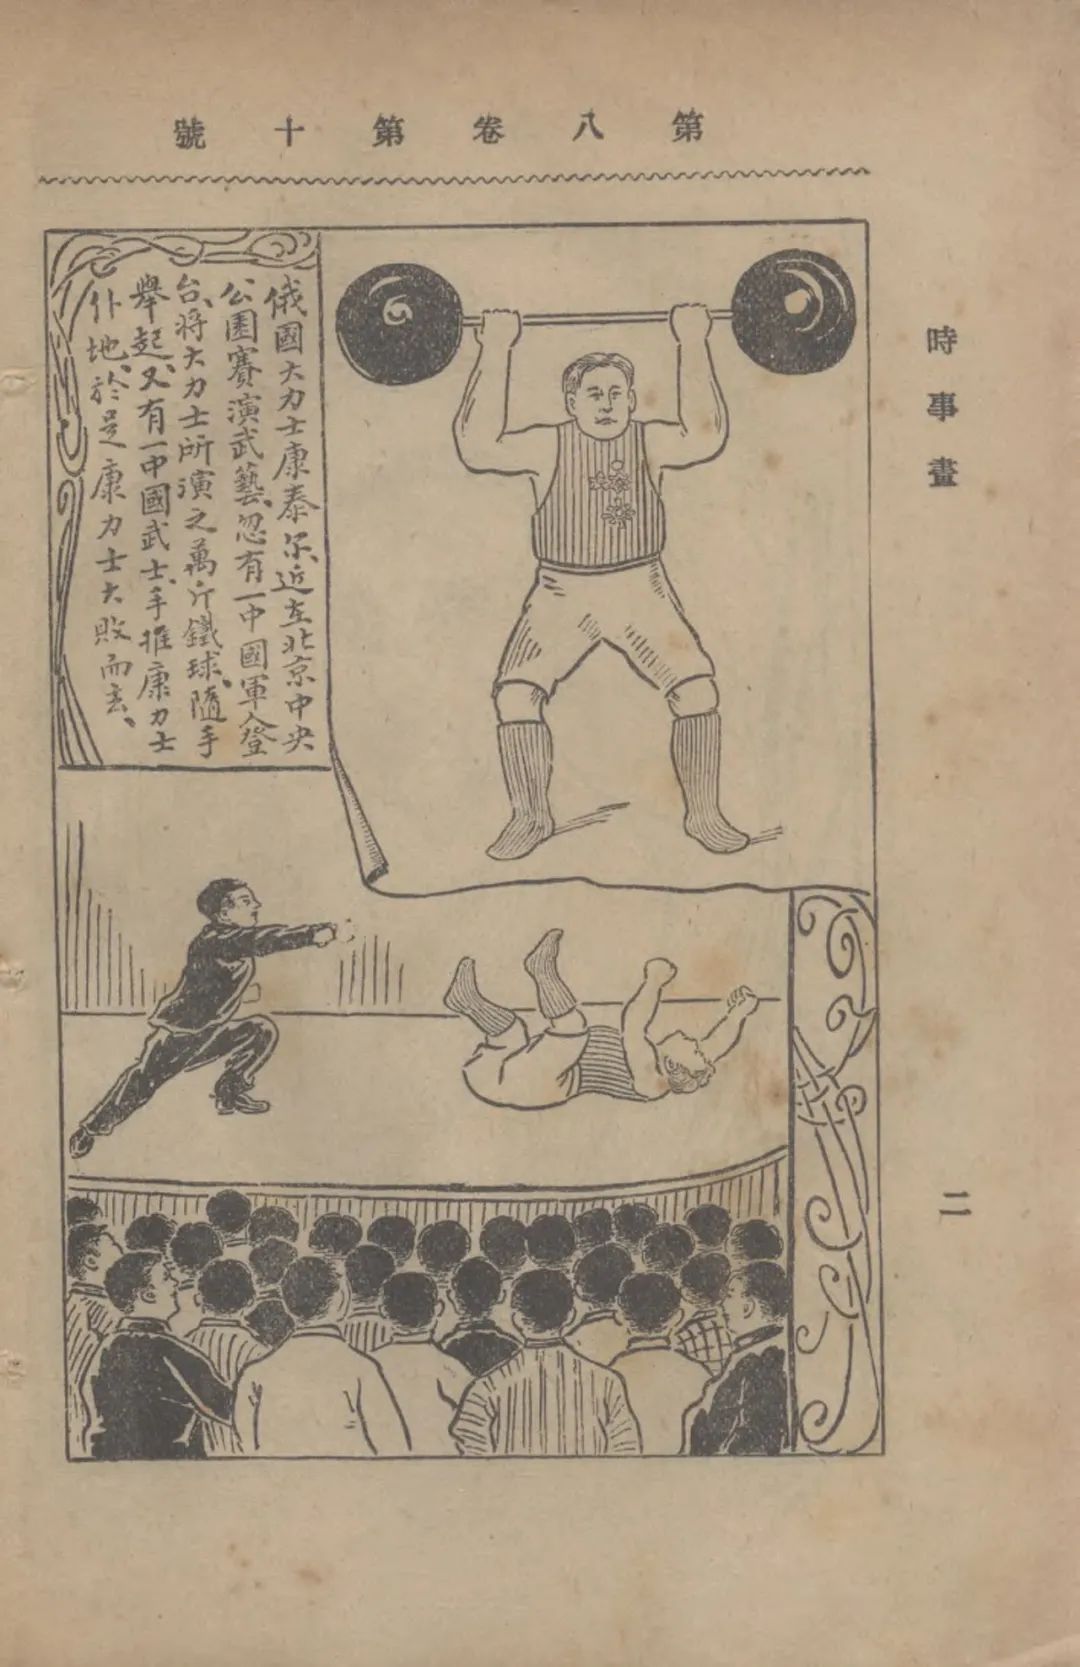 第八卷第十號
時事畫
俄國大力士康泰尔、近在北京中央
公園賽演武藝、忽有一中國軍人登
台、將大力士所演之萬斤鐵球、隨手
舉起、又有一中國武士、手推康力士
仆地、於是康力士大敗而去、
二